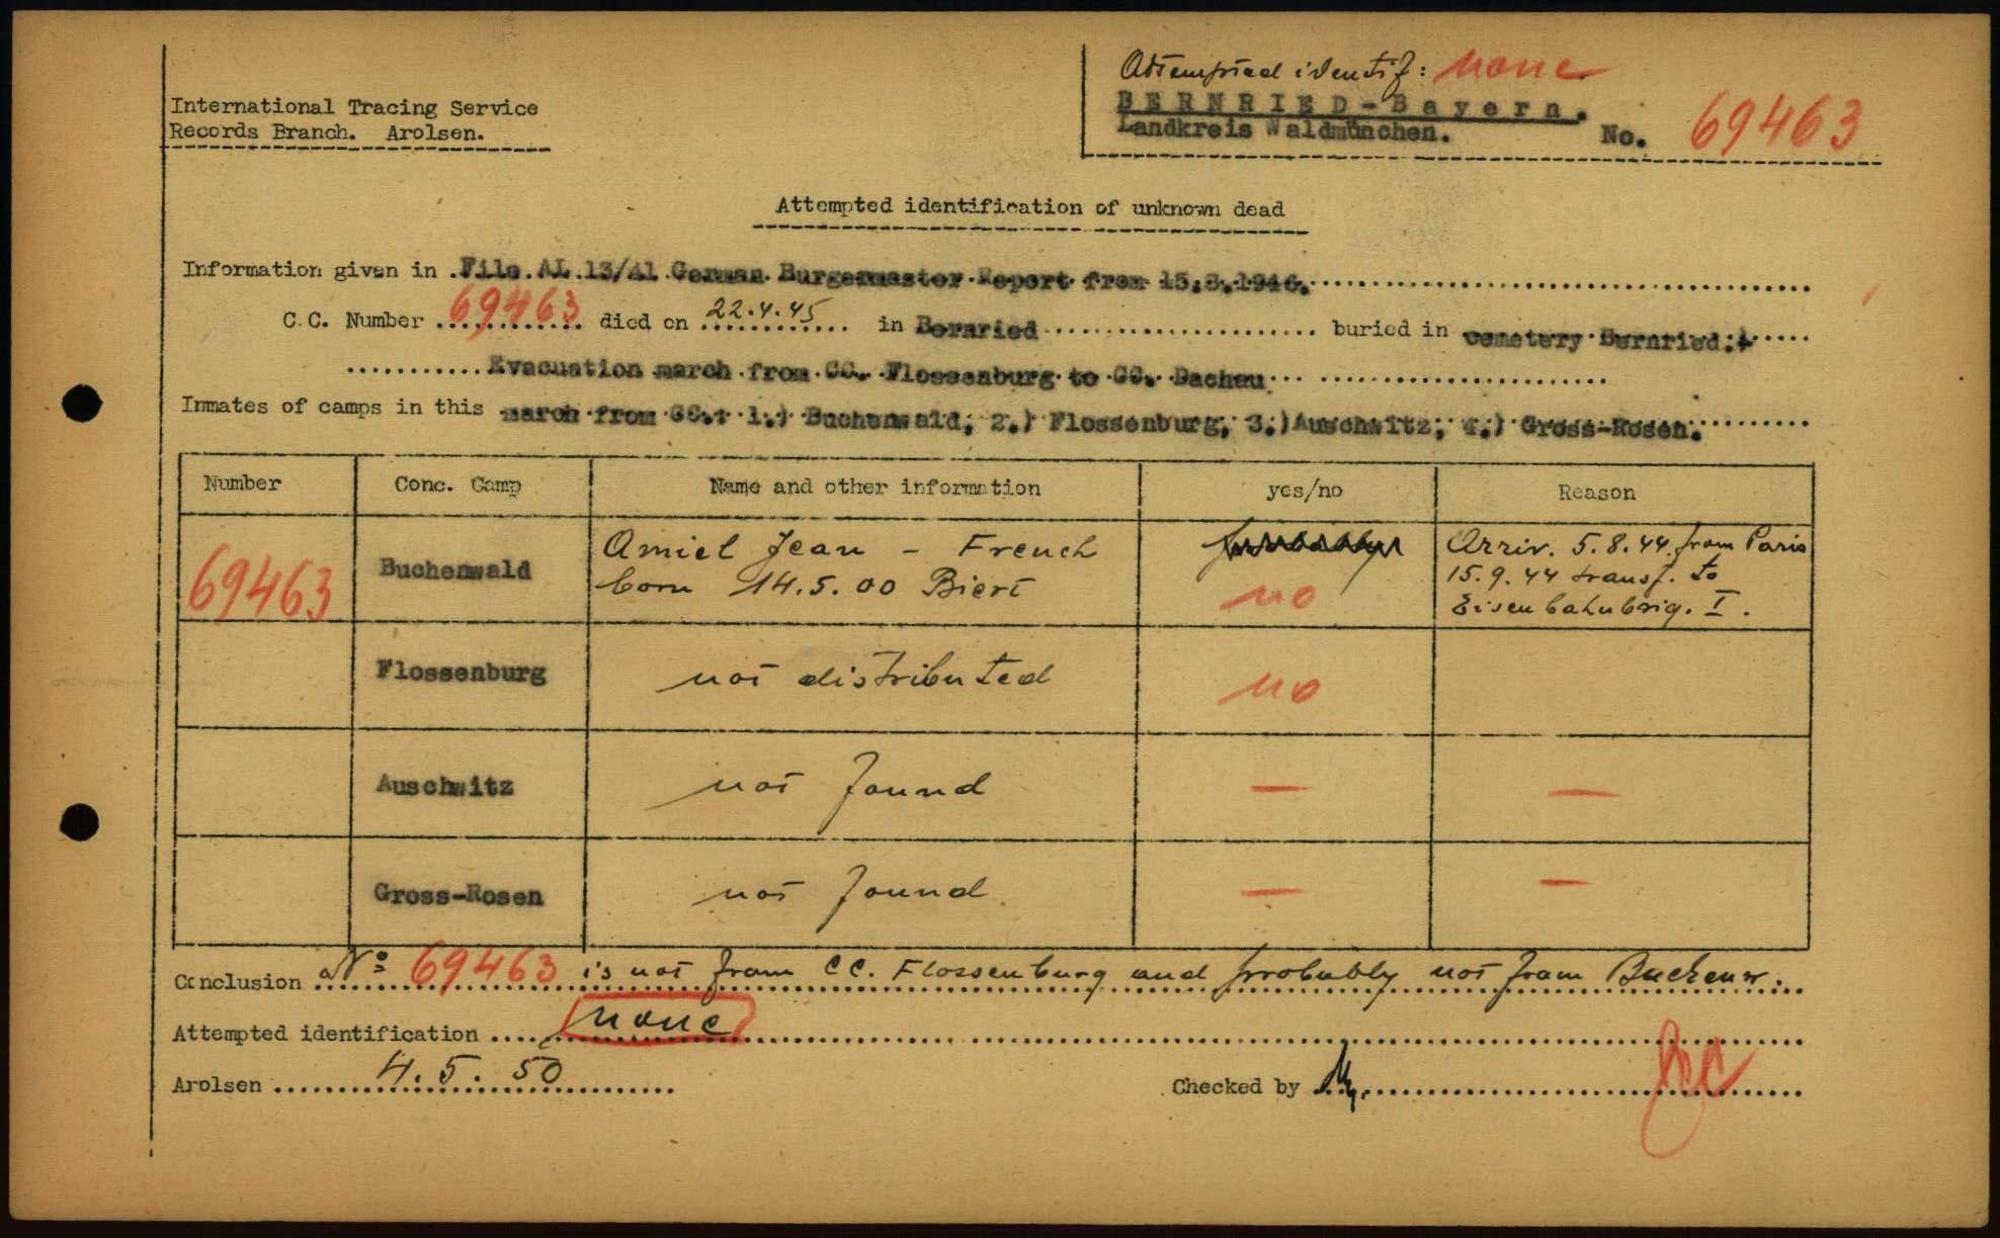 International Tracing Service
Records Branch. Arolsen.
Attempted identif: none
BERNRIED-Bayern.
Landkreis Waldmünchen.
No. 69463
Attempted identification of unknown dead
Information given in File AL 13/41 German Burgermaster Report from 15.8.1946.
C.C. Number 69463 died on 22.4.45 in Bernried buried in cemetery Bernried.
Evacuation march from CC. Flossenburg to CC. Dachau
Inmates of camps in this march from CC.: 1.) Buchenwald, 2.) Flossenburg, 3.) Auschwitz, 4.) Gross-Rosen.
Number Conc. Camp Name and other information yes/no Reason
69463 Buchenwald
Amiel Jean - French
born 14.5.00 Biert
no
Arriv. 5.8.44 from Paris
15.9.44 transf. to
Eisenbahnbrig. I.
Flossenburg not distributed no
Auschwitz not found — —
Gross-Rosen not found — —
Conclusion No 69463 is not from CC. Flossenburg and probably not from Buchenw.
Attempted identification none
Arolsen 4.5.50
Checked by